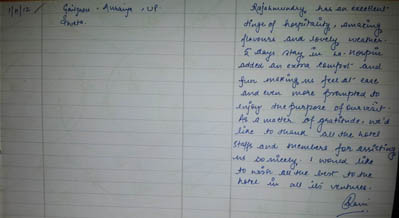 1/11/12
Gurgaon - Auraiya, UP.
Rajahmundry, has an excellent
tinge of hospitality, amazing
flavours and lovely weather.
5 days stay in La-Hospin
added an extra comfort and
fun making us feel at ease
and even more prompted to
enjoy the purpose of our visit.
As a matter of gratitude, we'd
like to thank all the hotel
staffs and members for assisting
us so nicely. I would like
to wish all the best to the
hotel in all its ventures.